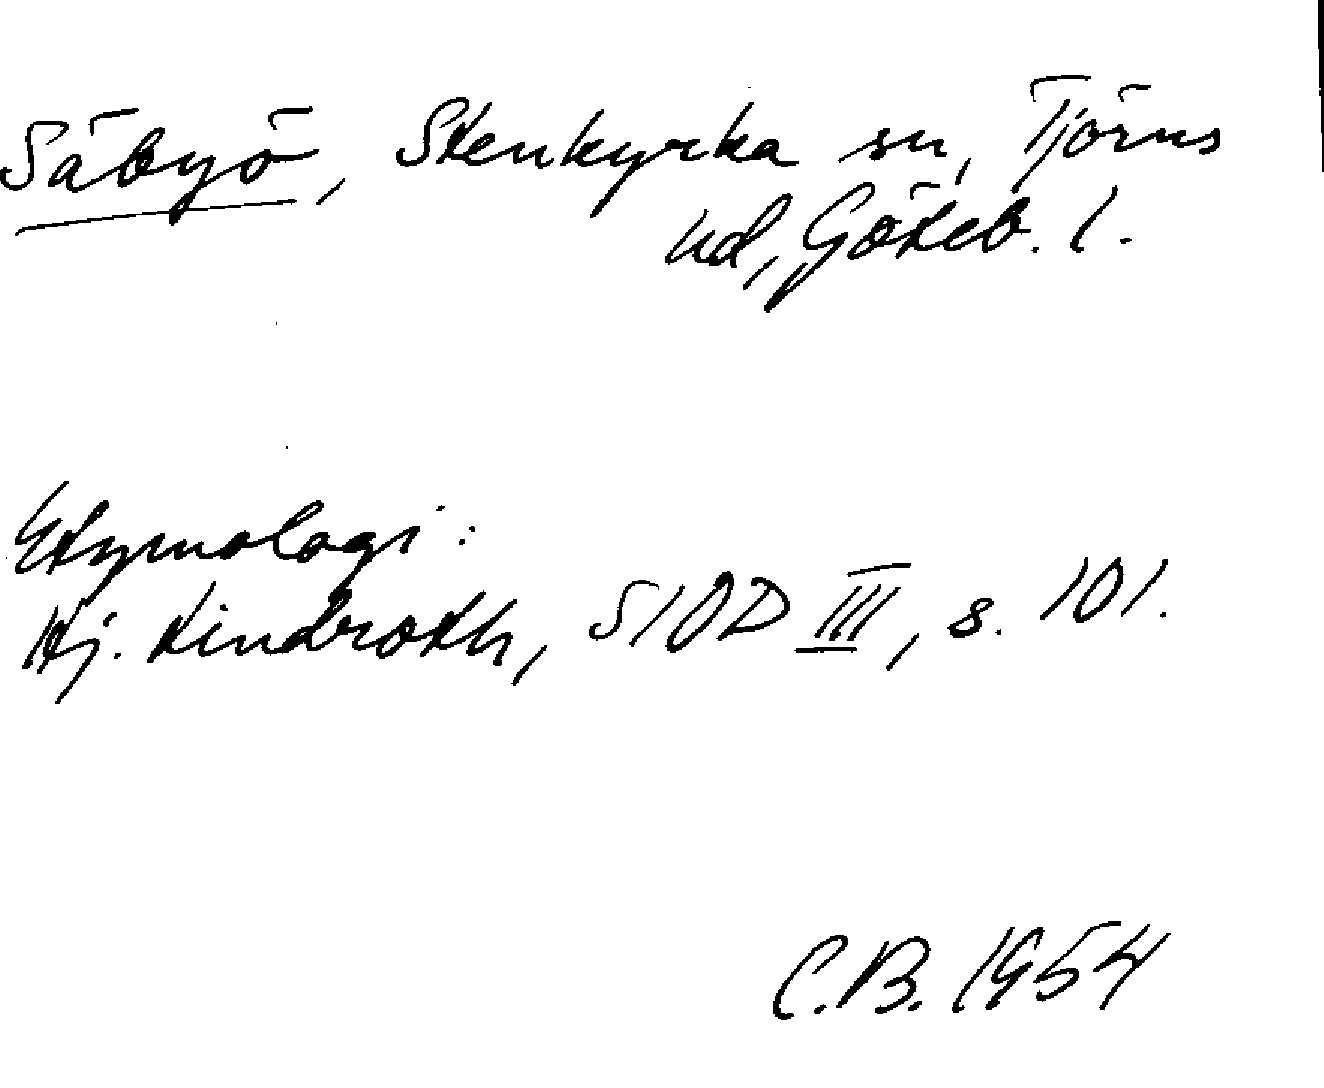 Säbyö, Stenkyrka sn, Tjörns
hd, Göteb. l.
Etymologi:
Hj. Lindroth, SIOD III, s. 101.
C.B. 1954